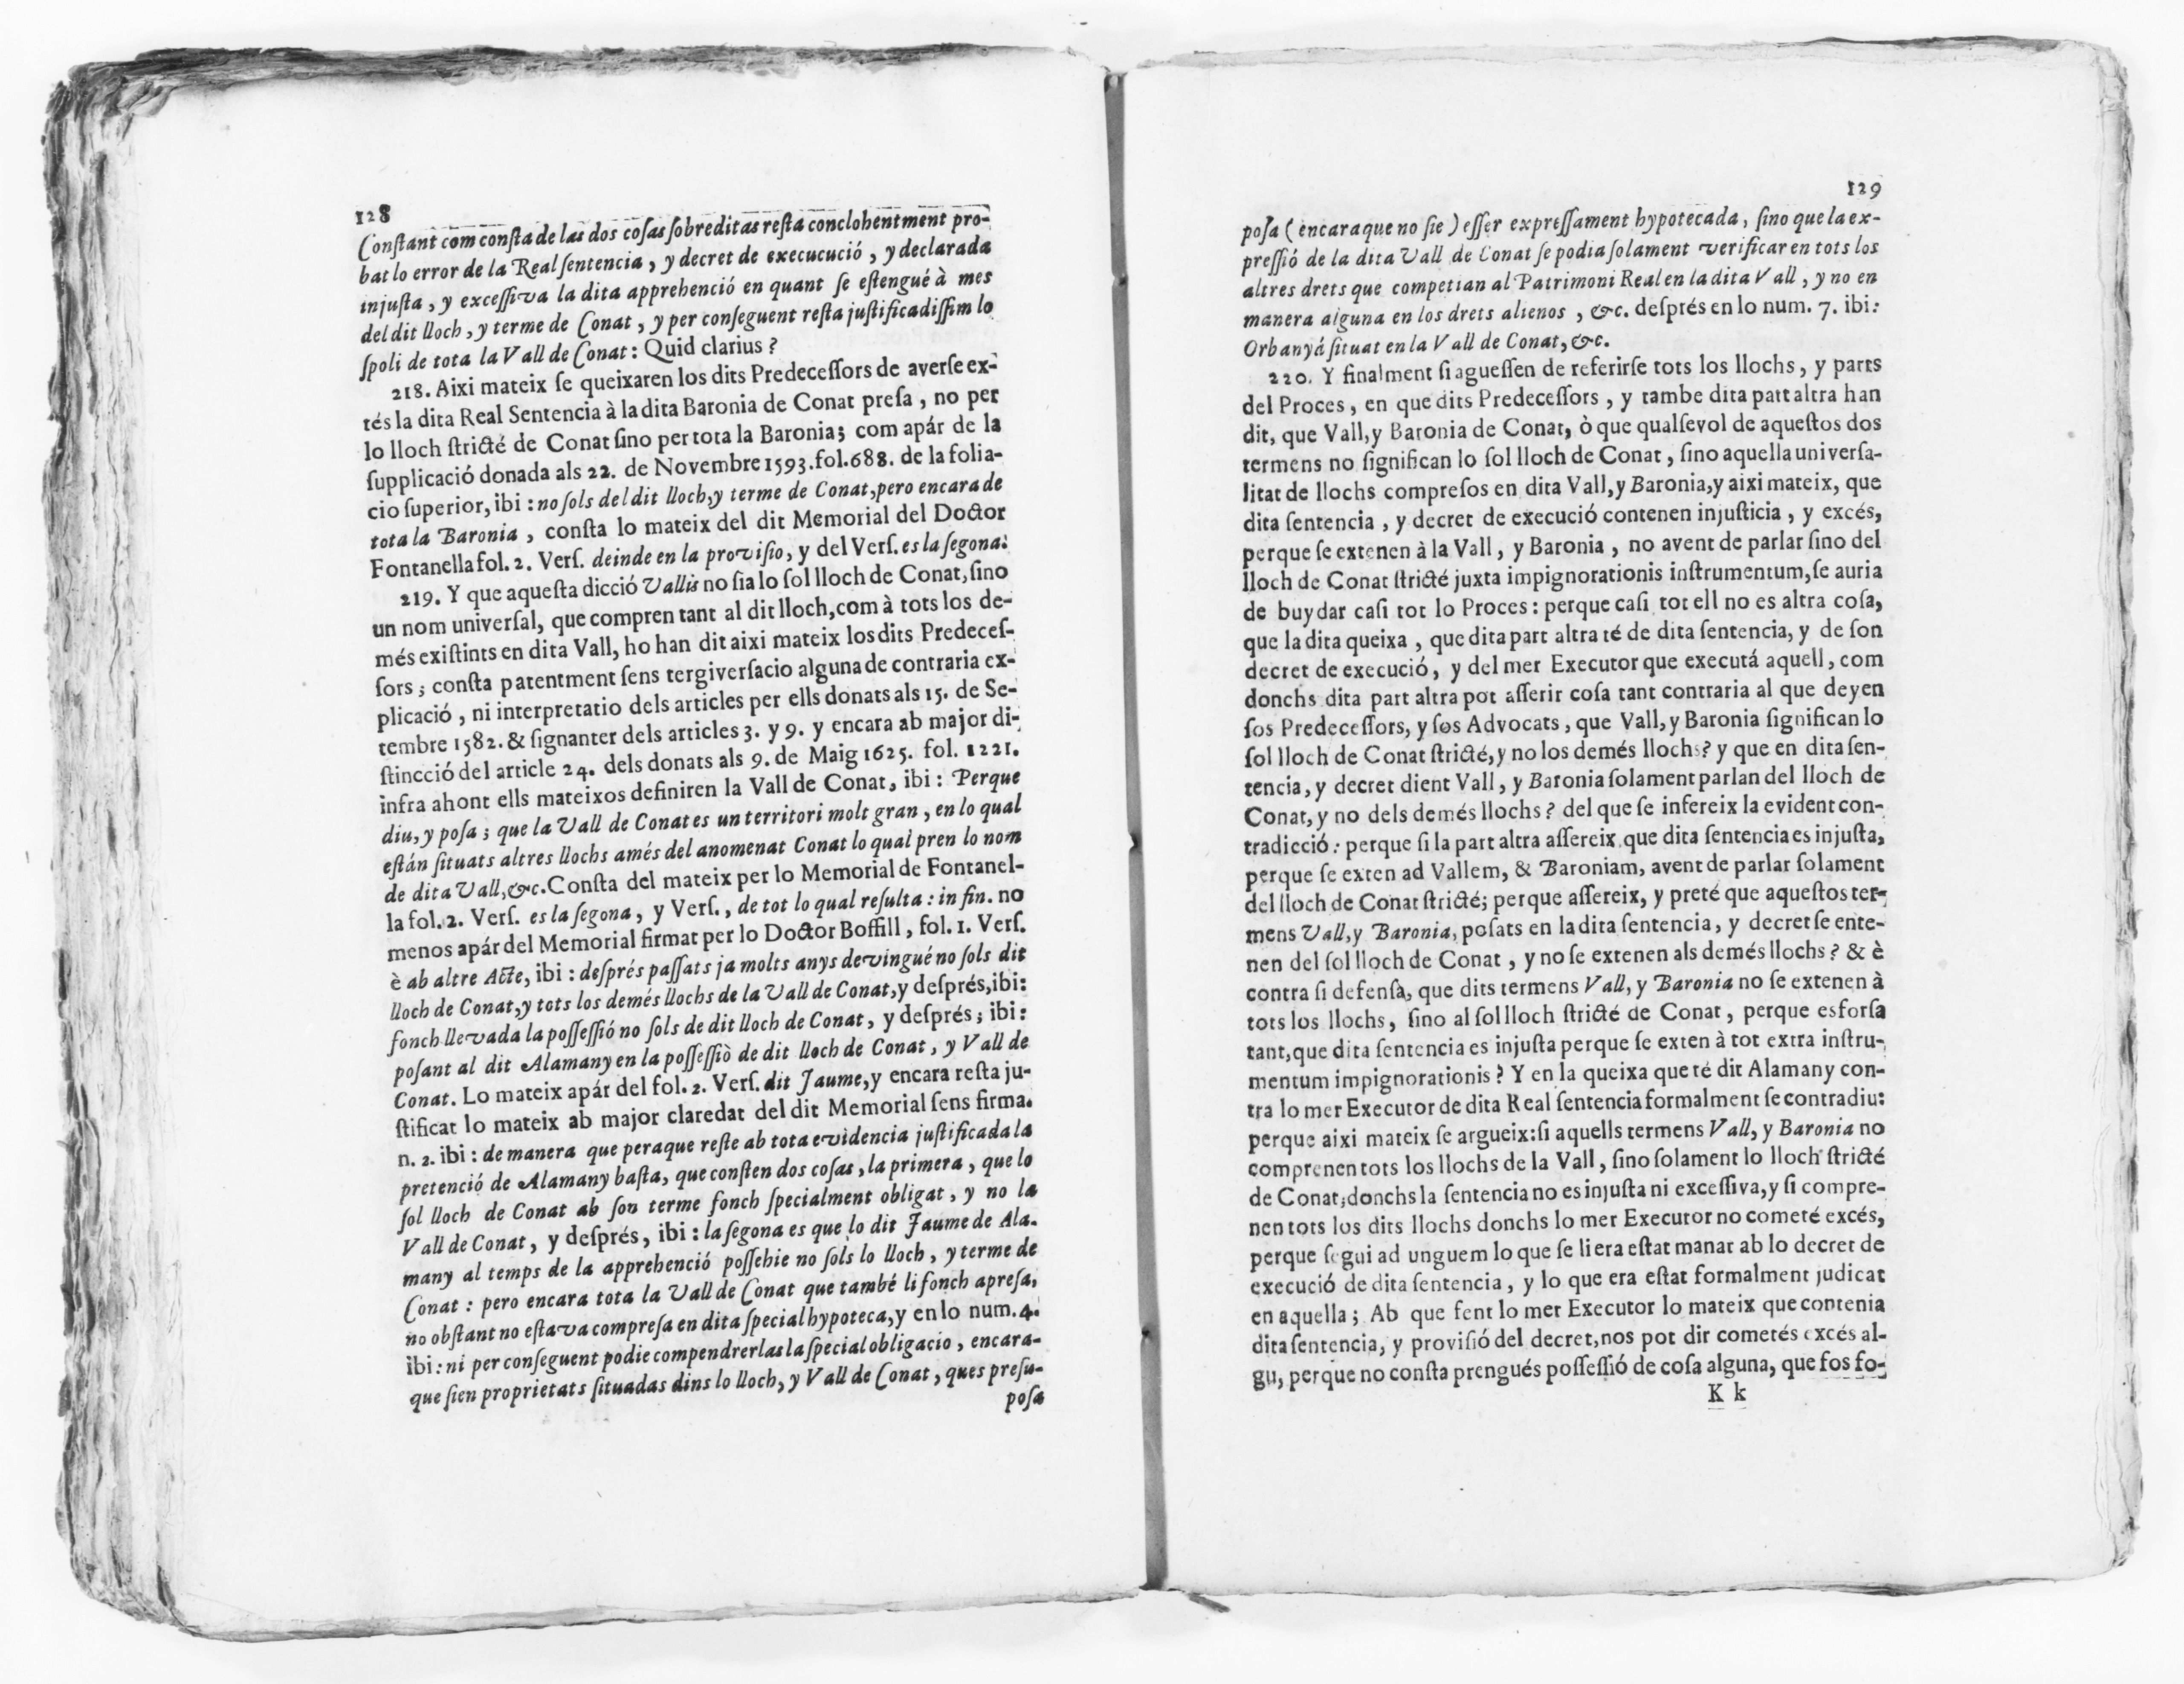 128
Conſtant com conſta de las dos coſas ſobreditas reſta conclohentment pro-
bat lo error de la Real ſentencia, y decret de execucució, y declarada
injuſta, y exceſſiva la dita apprehenció en quant ſe eſtengué à mes
del dit lloch, y terme de Conat, y per conſeguent reſta juſtificadiſſim lo
ſpoli de tota la Vall de Conat: Quid clarius?
218. Aixi mateix ſe queixaren los dits Predeceſſors de averſe ex-
tés la dita Real Sentencia à la dita Baronia de Conat preſa, no per
lo lloch ſtricté de Conat ſino per tota la Baronia; com apár de la
ſupplicació donada als 22. de Novembre 1593. fol. 688. de la folia-
cio ſuperior, ibi: no ſols del dit lloch, y terme de Conat, pero encara de
tota la Baronia, conſta lo mateix del dit Memorial del Doctor
Fontanella fol. 2. Verſ. deinde en la proviſio, y del Verſ. es la ſegona:
219. Y que aqueſta dicció Vallis no ſia lo ſol lloch de Conat, ſino
un nom univerſal, que compren tant al dit lloch, com à tots los de-
més exiſtints en dita Vall, ho han dit aixi mateix los dits Predeceſ-
ſors; conſta patentment ſens tergiverſacio alguna de contraria ex-
plicació, ni interpretatio dels articles per ells donats als 15. de Se-
tembre 1582. & ſignanter dels articles 3. y 9. y encara ab major di-
ſtincció del article 24. dels donats als 9. de Maig 1625. fol. 1221.
infra ahont ells mateixos definiren la Vall de Conat, ibi: Perque
diu, y poſa; que la Vall de Conat es un territori molt gran, en lo qual
eſtán ſituats altres llochs amés del anomenat Conat lo qual pren lo nom
de dita Vall, &c. Conſta del mateix per lo Memorial de Fontanel-
la fol. 2. Verſ. es la ſegona, y Verſ., de tot lo qual reſulta: in fin. no
menos apár del Memorial firmat per lo Doctor Boffill, fol. 1. Verſ.
è ab altre Acte, ibi: deſprés paſſats ja molts anys devingué no ſols dit
lloch de Conat, y tots los demés llochs de la Vall de Conat, y deſprés, ibi:
fonch llevada la poſſeſſió no ſols de dit lloch de Conat, y deſprés; ibi:
poſant al dit Alamany en la poſſeſſiò de dit lloch de Conat, y Vall de
Conat. Lo mateix apár del fol. 2. Verſ. dit Jaume, y encara reſta ju-
ſtificat lo mateix ab major claredat del dit Memorial ſens firma.
n. 2. ibi: de manera que peraque reſte ab tota evidencia juſtificada la
pretenció de Alamany baſta, que conſten dos coſas, la primera, que lo
ſol lloch de Conat ab ſon terme fonch ſpecialment obligat, y no la
Vall de Conat, y deſprés, ibi: la ſegona es que lo dit Jaume de Ala-
many al temps de la apprehenció poſſehie no ſols lo lloch, y terme de
Conat: pero encara tota la Vall de Conat que també li fonch apreſa,
no obſtant no eſtava compreſa en dita ſpecial hypoteca, y en lo num. 4.
ibi: ni per conſeguent podie compendrerlas la ſpecial obligacio, encara-
que ſien proprietats ſituadas dins lo lloch, y Vall de Conat, ques preſu-
poſa
129
poſa (encaraque no ſie) eſſer expreſſament hypotecada, ſino que la ex-
preſſió de la dita Vall de Conat ſe podia ſolament verificar en tots los
altres drets que competian al Patrimoni Real en la dita Vall, y no en
manera alguna en los drets alienos, &c. deſprés en lo num. 7. ibi:
Orbanyá ſituat en la Vall de Conat, &c.
220. Y finalment ſi agueſſen de referirſe tots los llochs, y parts
del Proces, en que dits Predeceſſors, y tambe dita part altra han
dit, que Vall, y Baronia de Conat, ò que qualſevol de aqueſtos dos
termens no ſignifican lo ſol lloch de Conat, ſino aquella univerſa-
litat de llochs compreſos en dita Vall, y Baronia, y aixi mateix, que
dita ſentencia, y decret de execució contenen injuſticia, y excés,
perque ſe extenen à la Vall, y Baronia, no avent de parlar ſino del
lloch de Conat ſtricté juxta impignorationis inſtrumentum, ſe auria
de buydar caſi tot lo Proces: perque caſi tot ell no es altra coſa,
que la dita queixa, que dita part altra té de dita ſentencia, y de ſon
decret de execució, y del mer Executor que executá aquell, com
donchs dita part altra pot aſſerir coſa tant contraria al que deyen
ſos Predeceſſors, y ſos Advocats, que Vall, y Baronia ſignifican lo
ſol lloch de Conat ſtricté, y no los demés llochs? y que en dita ſen-
tencia, y decret dient Vall, y Baronia ſolament parlan del lloch de
Conat, y no dels demés llochs? del que ſe infereix la evident con-
tradicció: perque ſi la part altra aſſereix que dita ſentencia es injuſta,
perque ſe exten ad Vallem, & Baroniam, avent de parlar ſolament
del lloch de Conat ſtricté; perque aſſereix, y preté que aqueſtos ter-
mens Vall, y Baronia, poſats en la dita ſentencia, y decret ſe ente-
nen del ſol lloch de Conat, y no ſe extenen als demés llochs? & è
contra ſi defenſa, que dits termens Vall, y Baronia no ſe extenen à
tots los llochs, ſino al ſol lloch ſtricté de Conat, perque esforſa
tant, que dita ſentencia es injuſta perque ſe exten à tot extra inſtru-
mentum impignorationis? Y en la queixa que té dit Alamany con-
tra lo mer Executor de dita Real ſentencia formalment ſe contradiu:
perque aixi mateix ſe argueix: ſi aquells termens Vall, y Baronia no
comprenen tots los llochs de la Vall, ſino ſolament lo lloch ſtricté
de Conat; donchs la ſentencia no es injuſta ni exceſſiva, y ſi compre-
nen tots los dits llochs donchs lo mer Executor no cometé excés,
perque ſegui ad unguem lo que ſe li era eſtat manat ab lo decret de
execució de dita ſentencia, y lo que era eſtat formalment judicat
en aquella; Ab que fent lo mer Executor lo mateix que contenia
dita ſentencia, y proviſió del decret, nos pot dir cometés excés al-
gu, perque no conſta prengués poſſeſſió de coſa alguna, que fos fo-
K k